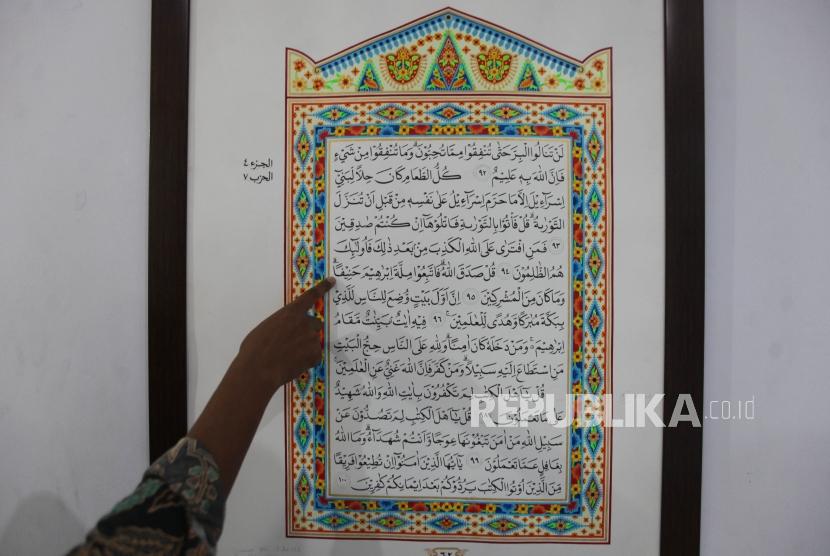 الجزء ٤
الحزب ٧
لَنْ تَنَالُوا الْبِرَّ حَتّٰى تُنْفِقُوْا مِمَّا تُحِبُّوْنَ ۗ وَمَا تُنْفِقُوْا مِنْ شَيْءٍ
فَاِنَّ اللّٰهَ بِهٖ عَلِيْمٌ ٩٢ كُلُّ الطَّعَامِ كَانَ حِلًّا لِّبَنِيْٓ
اِسْرَآءِيْلَ اِلَّا مَا حَرَّمَ اِسْرَآءِيْلُ عَلٰى نَفْسِهٖ مِنْ قَبْلِ اَنْ تُنَزَّلَ
التَّوْرٰىةُ ۗ قُلْ فَأْتُوْا بِالتَّوْرٰىةِ فَاتْلُوْهَآ اِنْ كُنْتُمْ صٰدِقِيْنَ
٩٣ فَمَنِ افْتَرٰى عَلَى اللّٰهِ الْكَذِبَ مِنْ بَعْدِ ذٰلِكَ فَاُولٰۤىِٕكَ
هُمُ الظّٰلِمُوْنَ ٩٤ قُلْ صَدَقَ اللّٰهُ ۗ فَاتَّبِعُوْا مِلَّةَ اِبْرٰهِيْمَ حَنِيْفًاۗ
وَمَا كَانَ مِنَ الْمُشْرِكِيْنَ ٩٥ اِنَّ اَوَّلَ بَيْتٍ وُّضِعَ لِلنَّاسِ لَلَّذِيْ
بِبَكَّةَ مُبٰرَكًا وَّهُدًى لِّلْعٰلَمِيْنَ ۚ ٩٦ فِيْهِ اٰيٰتٌۢ بَيِّنٰتٌ مَّقَامُ
اِبْرٰهِيْمَ ۚ وَمَنْ دَخَلَهٗ كَانَ اٰمِنًا ۗ وَلِلّٰهِ عَلَى النَّاسِ حِجُّ الْبَيْتِ
مَنِ اسْتَطَاعَ اِلَيْهِ سَبِيْلًا ۗ وَمَنْ كَفَرَ فَاِنَّ اللّٰهَ غَنِيٌّ عَنِ الْعٰلَمِيْنَ
قُلْ يٰٓاَهْلَ الْكِتٰبِ لِمَ تَكْفُرُوْنَ بِاٰيٰتِ اللّٰهِ وَاللّٰهُ شَهِيْدٌ
عَلٰى مَا تَعْمَلُوْنَ قُلْ يٰٓاَهْلَ الْكِتٰبِ لِمَ تَصُدُّوْنَ عَنْ
سَبِيْلِ اللّٰهِ مَنْ اٰمَنَ تَبْغُوْنَهَا عِوَجًا وَّاَنْتُمْ شُهَدَآءُ ۗ وَمَا اللّٰهُ
بِغَافِلٍ عَمَّا تَعْمَلُوْنَ ٩٩ يٰٓاَيُّهَا الَّذِيْنَ اٰمَنُوْٓا اِنْ تُطِيْعُوْا فَرِيْقًا
مِّنَ الَّذِيْنَ اُوْتُوا الْكِتٰبَ يَرُدُّوْكُمْ بَعْدَ اِيْمَانِكُمْ كٰفِرِيْنَ ١٠٠
٦٢
REPUBLIKA.co.id